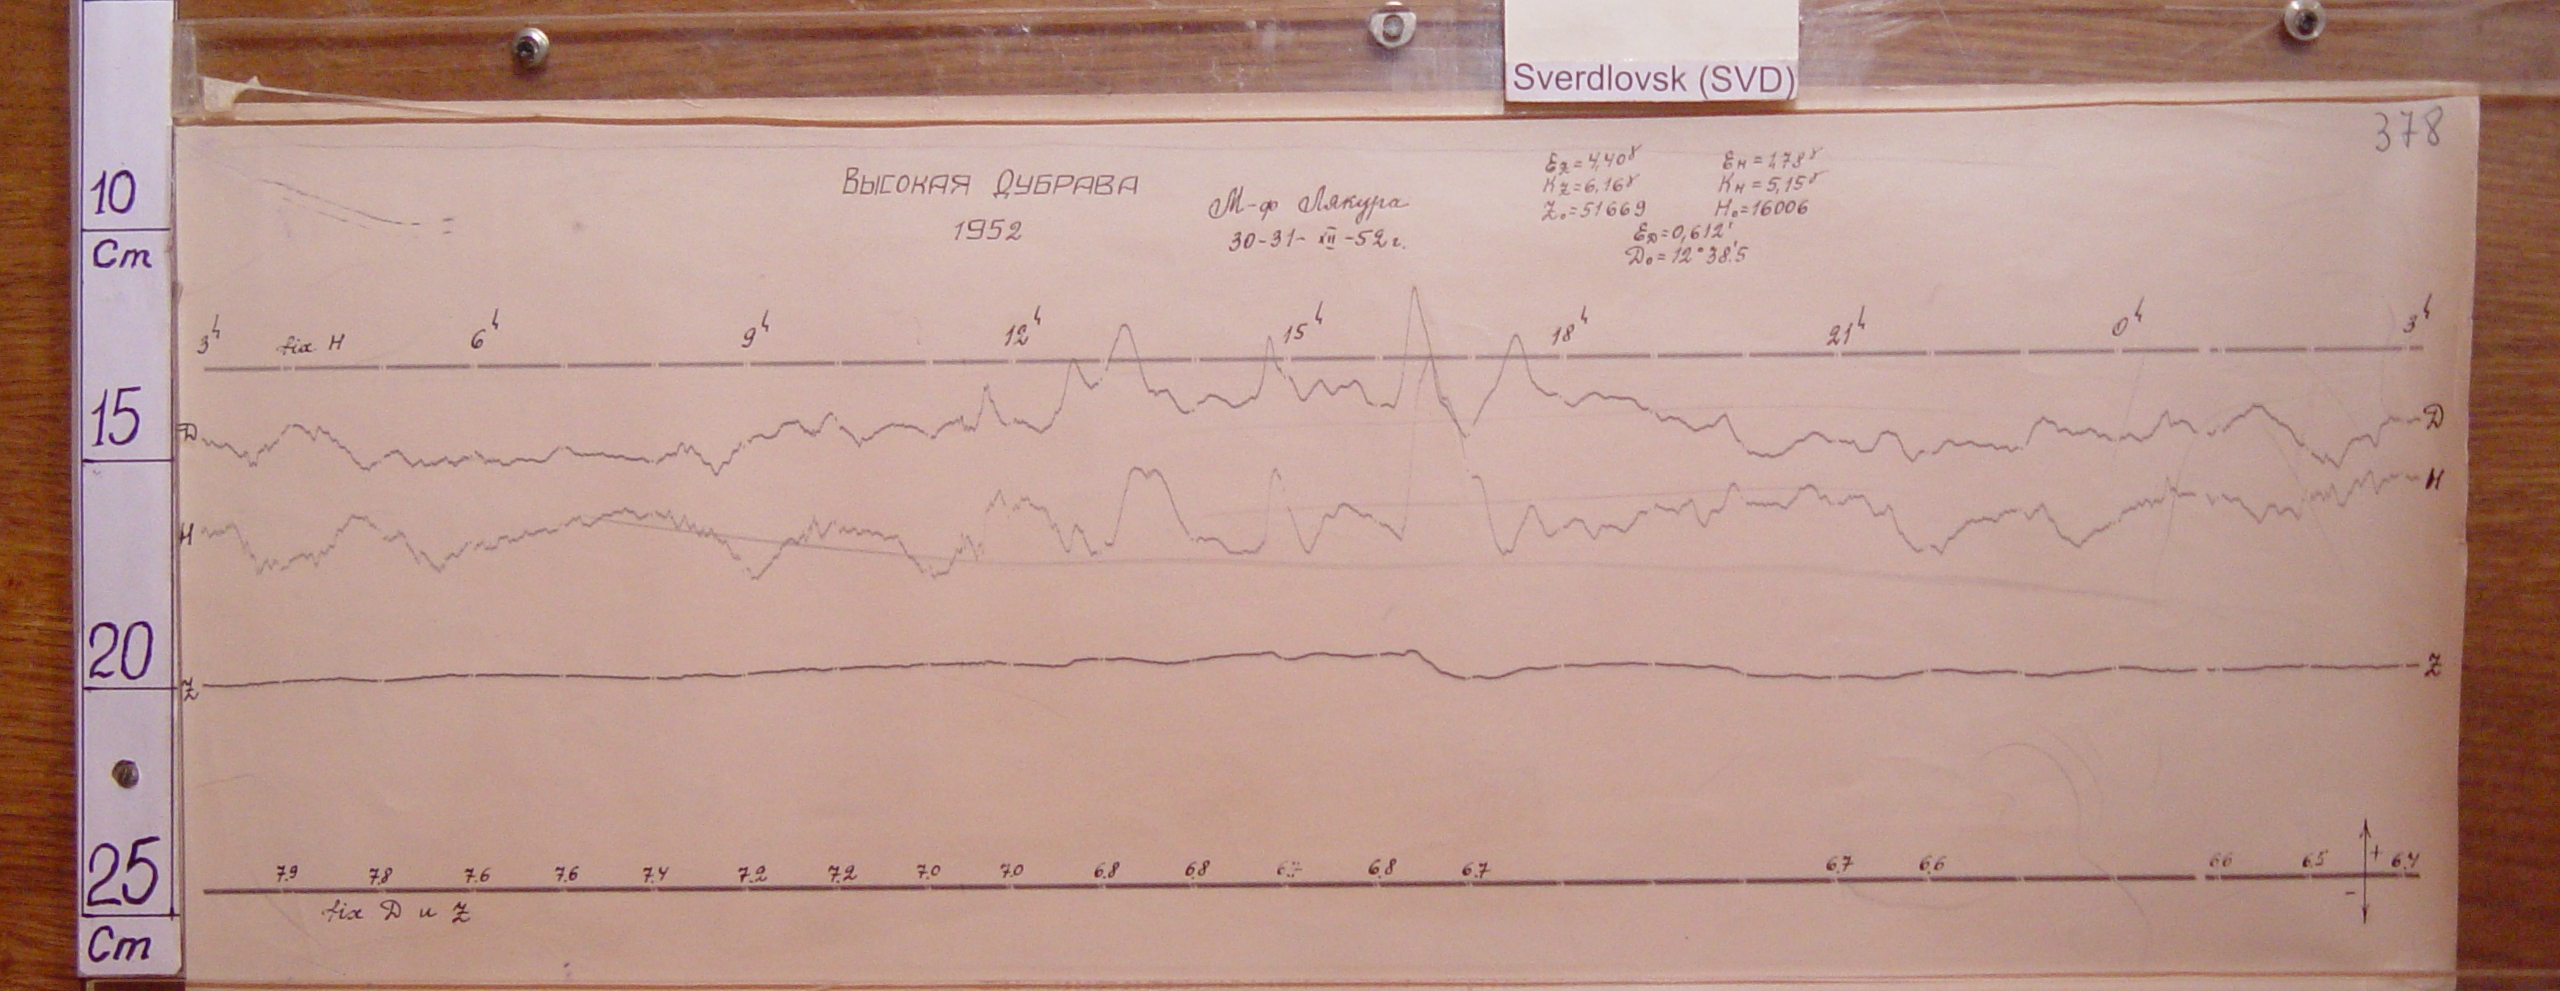 Sverdlovsk (SVD)
378
ВЫСОКАЯ ДУБРАВА
1952
М-ф Лякура
30-31-XII-52 г.
Ez=4,40γ EH=1,78γ
Kz=6,16γ KH=5,15γ
Z₀=51669 H₀=16006
ED=0,612'
D₀=12°38.'5
10
Cm
15
20
25
Cm
3h fix H 6h 9h 12h 15h 18h 21h 0h 3h
D D
H H
Z Z
7.9 7.8 7.6 7.6 7.4 7.2 7.2 7.0 7.0 6.8 6.8 6.7 6.8 6.7 6.7 6.6 6.6 6.5 6.4
+
-
fix D и Z